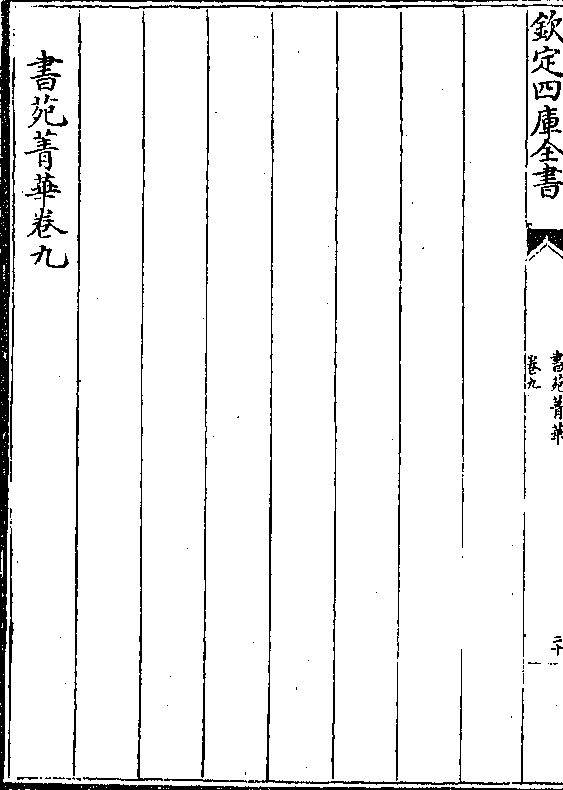 欽定四庫全書
書苑菁華
卷九
二十
書苑菁華卷九